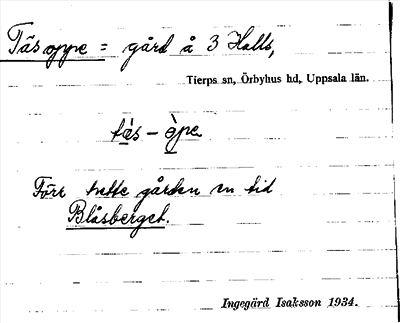 Täsoppe = gård å 3 Halls,
Tierps sn, Örbyhus hd, Uppsala län.
täs - òpe
Förr hette gården en tid
Blåsberget.
Ingegärd Isaksson 1934.